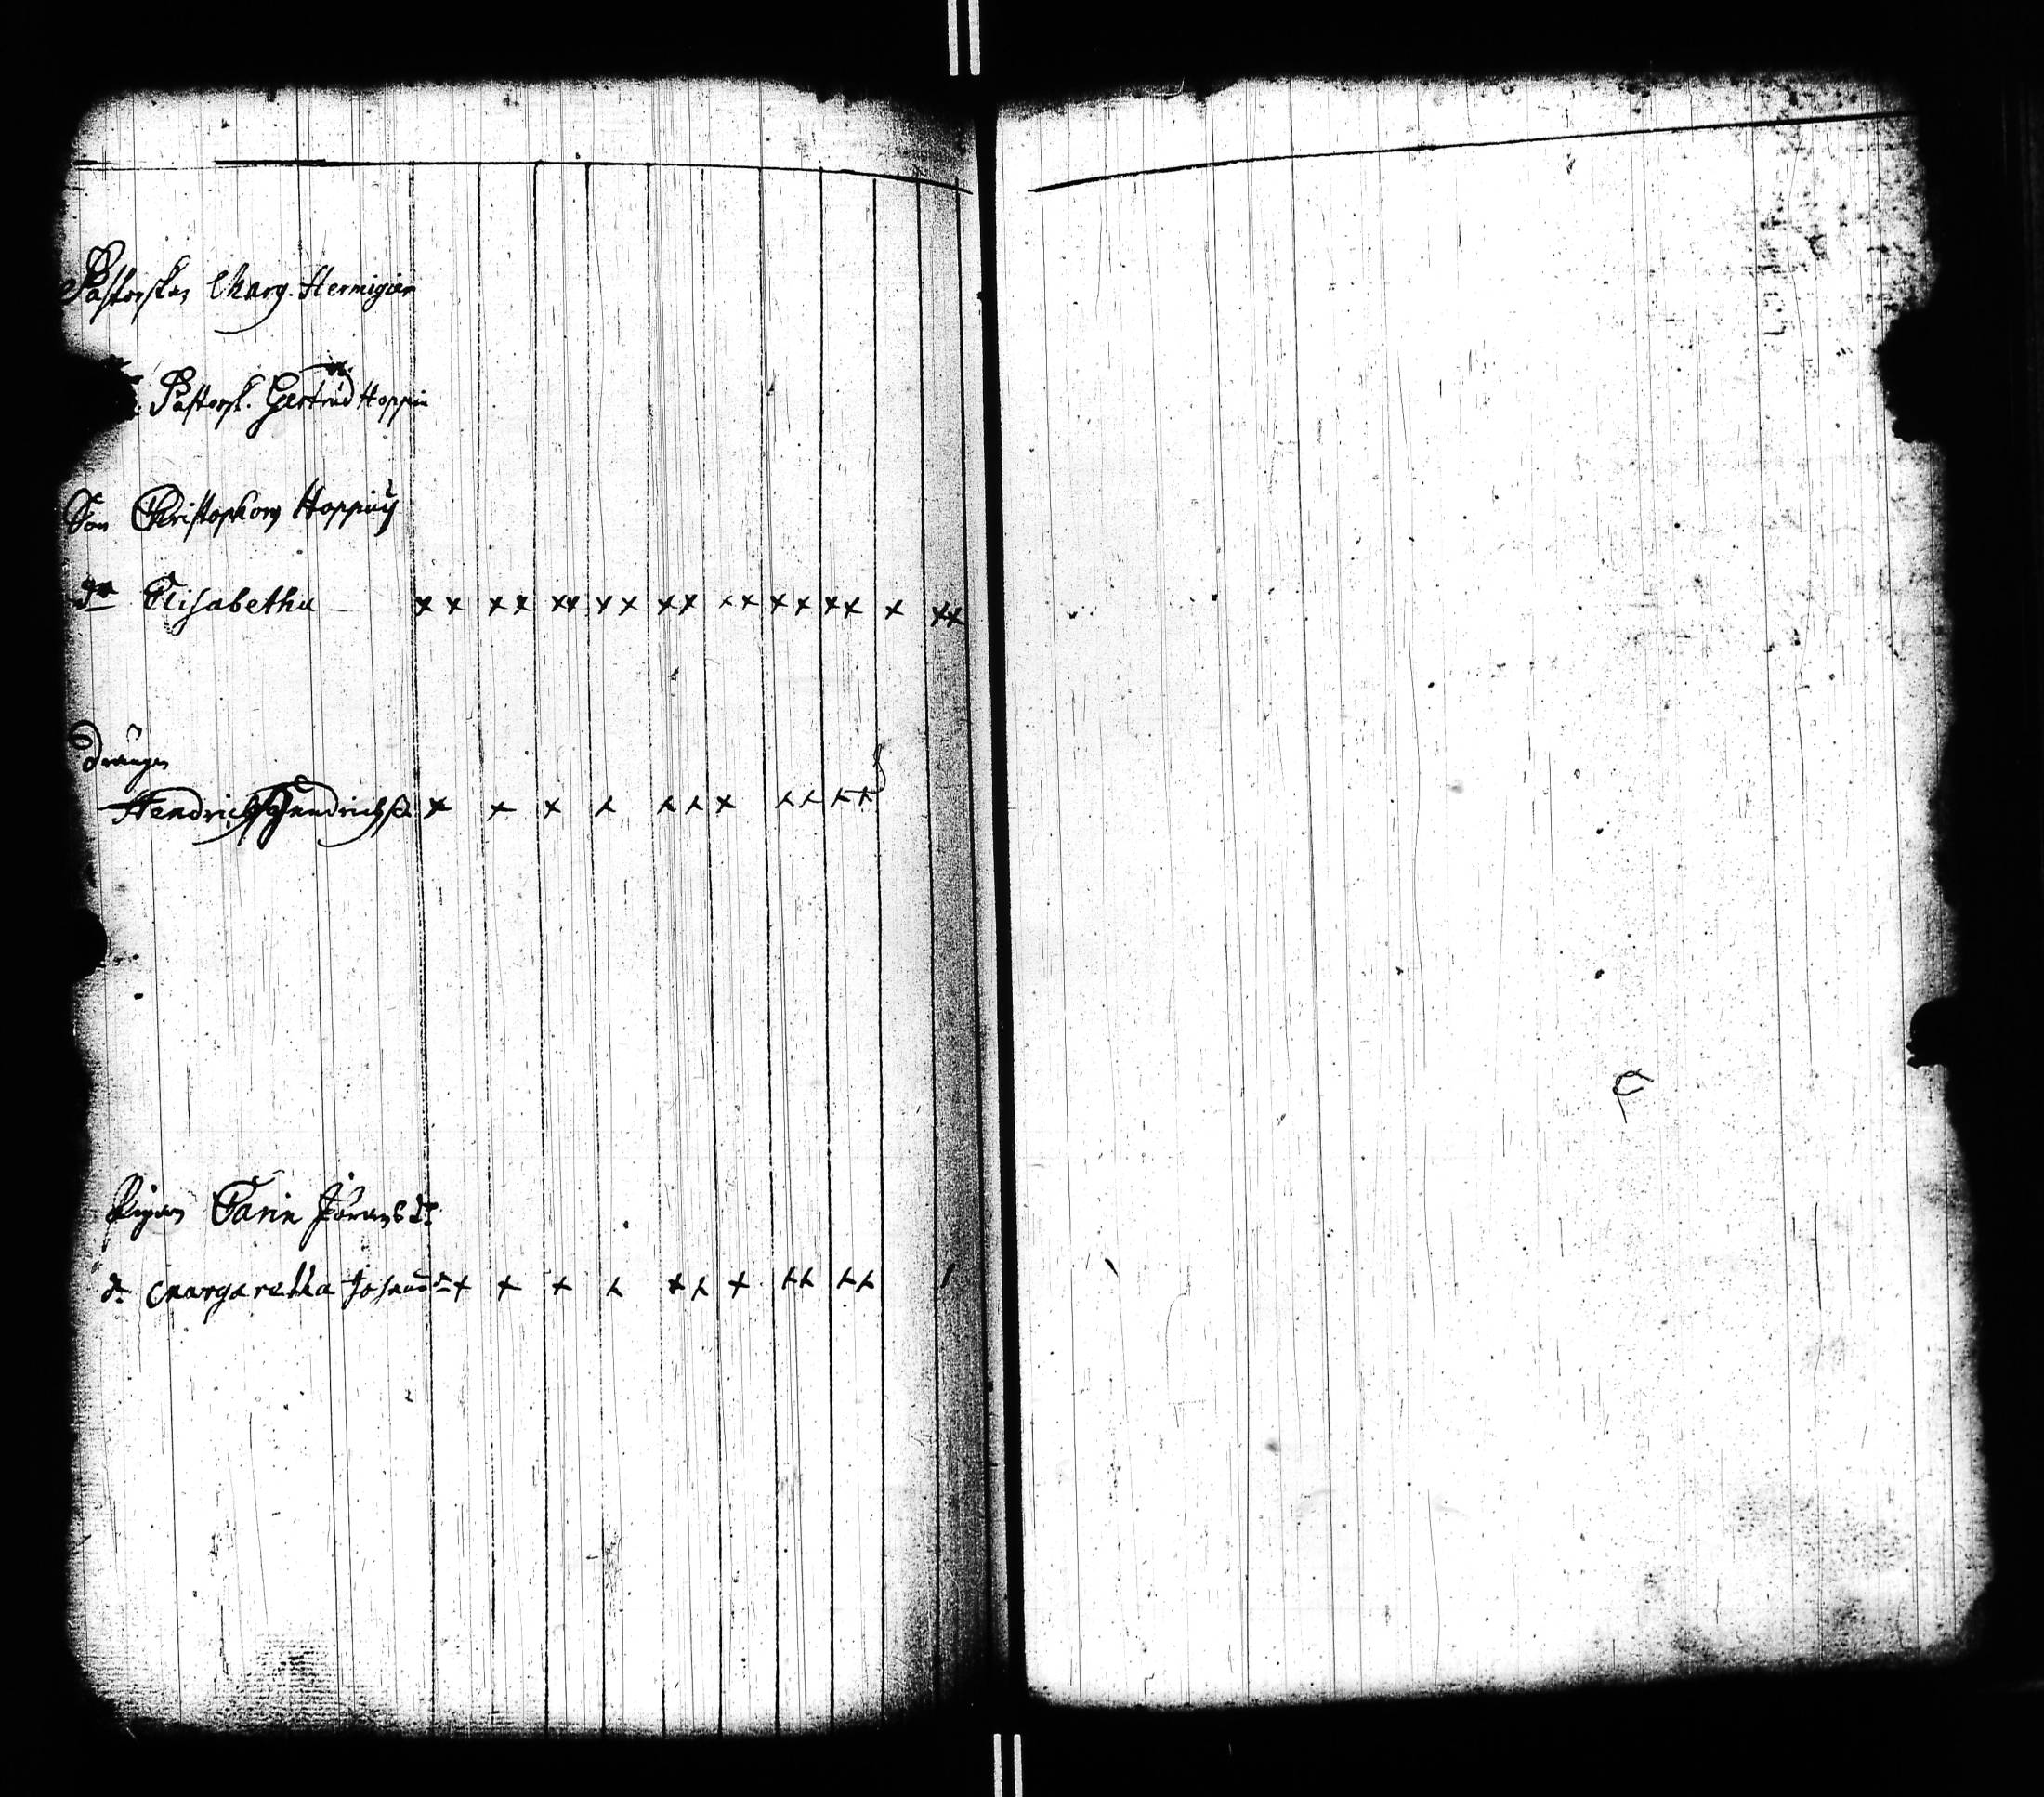 Pastorskan Marg. Hermigior
Pastorsk. Gertrud Hoppia
Son Christophorg Hoppius
dr Elisabetha x x x x x x x x x x x x x x x x x x x
Drängen
Hendrich Hendrichs x x x x x x x x x x x
Pigan Carin Jörans dr
dr Margaretha x x x x x x x x x x x